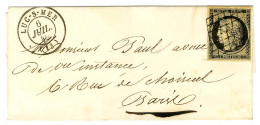 LUC-S-MER
6
JUIL.
Monsieur Paul avoué
de 1re instance,
6 Rue de Choiseul
Paris